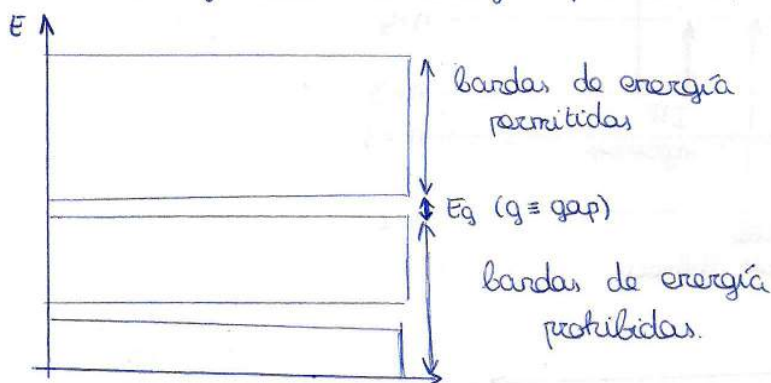 E
bandas de energía
permitidas
Eg (g ≡ gap)
bandas de energía
prohibidas.